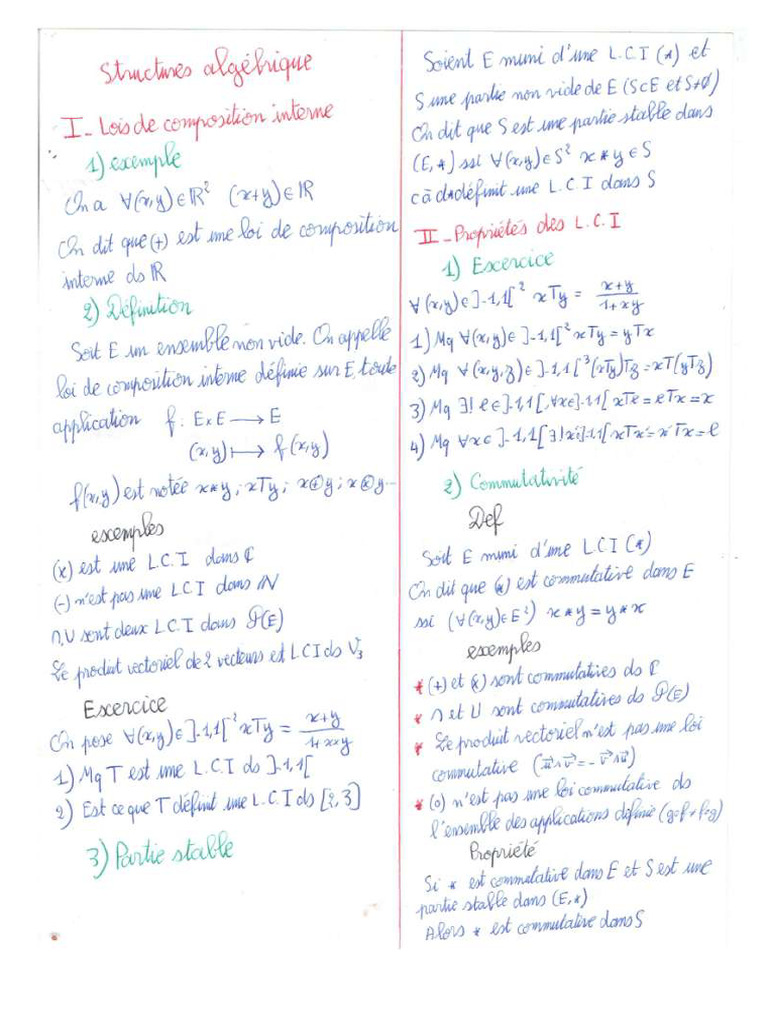 Structures algébrique
I - Lois de composition interne
1) exemple
On a ∀(x,y)∈ℝ² (x+y)∈ℝ
On dit que (+) est une loi de composition
interne ds ℝ
2) Définition
Soit E un ensemble non vide. On appelle
loi de composition interne définie sur E, toute
application f : E×E ⟶ E
(x,y) ⟼ f(x,y)
f(x,y) est notée x*y ; xTy ; x⊕y ; x⊗y...
exemples
(x) est une L.C.I dans ℂ
(-) n'est pas une L.C.I dans ℕ
∩,∪ sont deux L.C.I dans P(E)
Le produit vectoriel de 2 vecteurs est L.C.I ds V₃
Exercice
On pose ∀(x,y)∈]-1,1[² xTy = (x+y)/(1+x×y)
1) Mq T est une L.C.I ds ]-1,1[
2) Est ce que T définit une L.C.I ds [2,3]
3) Partie stable
Soient E muni d'une L.C.I (*) et
S une partie non vide de E (S⊂E et S≠∅)
On dit que S est une partie stable dans
(E,*) ssi ∀(x,y)∈S² x*y∈S
càd * définit une L.C.I dans S
II - Propriétés des L.C.I
1) Excercice
∀(x,y)∈]-1,1[² xTy = (x+y)/(1+xy)
1) Mq ∀(x,y)∈]-1,1[² xTy = yTx
2) Mq ∀(x,y,z)∈]-1,1[³ (xTy)Tz = xT(yTz)
3) Mq ∃! e∈]-1,1[, ∀x∈]-1,1[ xTe = eTx = x
4) Mq ∀x∈]-1,1[ ∃! x'∈]-1,1[ xTx' = x'Tx = e
2) Commutativité
Def
Soit E muni d'une L.C.I (*)
On dit que (*) est commutative dans E
ssi (∀(x,y)∈E²) x*y = y*x
exemples
* (+) et (x) sont commutatives ds ℂ
* ∩ et ∪ sont commutatives ds P(E)
* Le produit vectoriel n'est pas une loi
commutative (u⃗∧v⃗ = -v⃗∧u⃗)
* (o) n'est pas une loi commutative ds
l'ensemble des applications définie (gof ≠ fog)
Propriété
Si * est commutative dans E et S est une
partie stable dans (E,*)
Alors * est commutative dans S